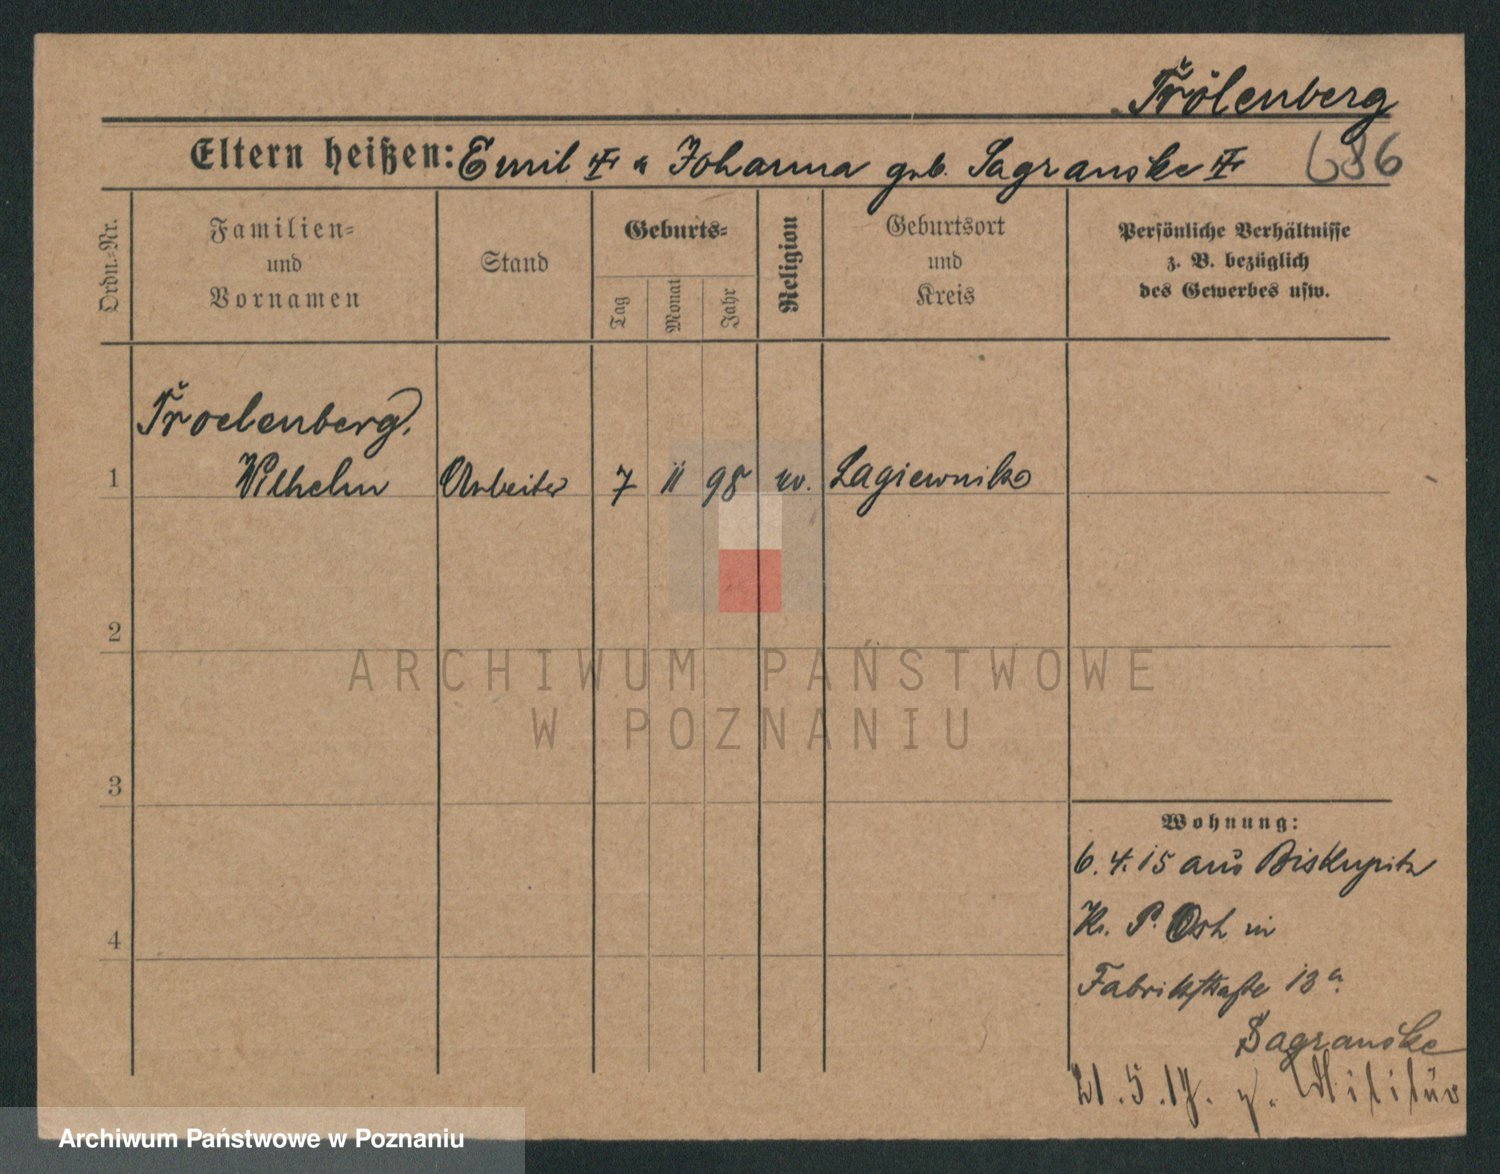 Trölenberg
Eltern heißen: Emil † u Johanna geb. Sagranske †
686
Ordn.-Nr.
Familien-
und
Vornamen
Stand
Geburts-
Tag
Monat
Jahr
Religion
Geburtsort
und
Kreis
Persönliche Verhältnisse
z. B. bezüglich
des Gewerbes usw.
Troelenberg,
1 Wilhelm Arbeiter 7 11 98 ev. Lagiewnik
2
3
4
ARCHIWUM PAŃSTWOWE
W POZNANIU
Wohnung:
6.4.15 aus Biskupitz
Kr. P. Ost in
Fabrikstraße 13a
Sagranske
21.5.17. z. Militär
Archiwum Państwowe w Poznaniu